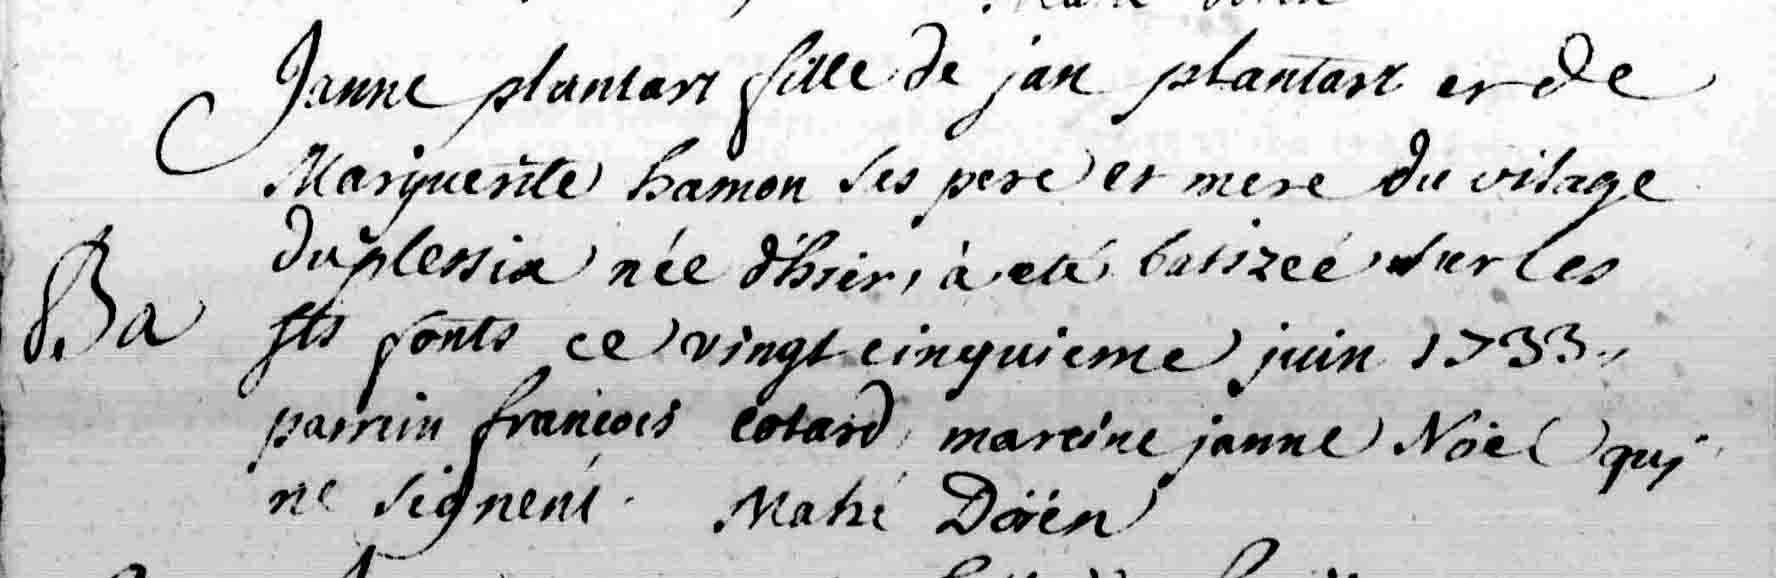 Janne plantart fille de jan plantart et de
Marguerite hamon ses pere et mere du vilage
duplessix née d'hier, à eté batizeé sur les
Ba
sts fonts ce vingt cinquieme juin 1733.,
parrein francois cotard, mareine janne Noël qui
ne signent. Mahé Döien